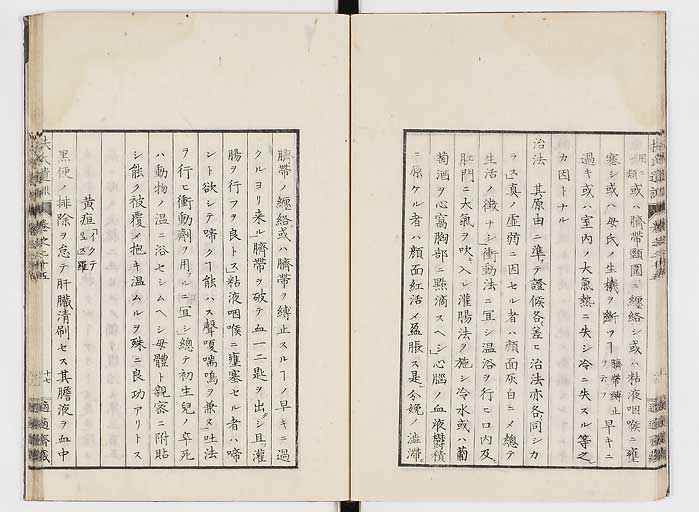 用ニ類 或ハ臍帶頸圍ニ纏絡シ或ハ粘液咽喉ニ壅
塞シ或ハ母氏ノ生機ヲ斷ツ 臍帶縛止早キニ
過キ或ハ室內ノ大氣熱ニ失シ冷ニ失スル等之
カ因トナル
治法 其原由ニ準テ證候各差ヒ治法亦各同シカ
ラス真ノ虛弱ニ因セル者ハ顏面灰白ニメ總テ
生活ノ徵ナシ衝動法ニ宜シ温浴ヲ行ヒ口內及
肛門ニ大氣ヲ吹入シ灌腸法ヲ施シ冷水或ハ葡
萄酒ヲ心窩胸部ニ點滴スヘシ心腦ノ血液鬱積
ニ原ケル者ハ顏面紅活メ盈脹ス是分娩ノ溢滯
臍帶ノ纏絡或ハ臍帶ヲ縛止スルヿノ早キニ過
クルヨリ來ル臍帶ヲ破テ血一二匙ヲ出シ且灌
腸ヲ行フヲ良トス粘液咽喉ニ壅塞セル者ハ啼
ント欲シテ啼クヿ能ハス聲嗄喘鳴ヲ兼ヌ吐法
ヲ行ヒ衝動劑ヲ用ルニ宜シ總テ初生兒ノ卒死
ハ動物ノ温ニ浴セシムヘシ母體ト親密ニ附貼
シ能ク被覆シ抱キ温ムルヲ殊ニ良功アリトス
黃疸
黑便ノ排除ヲ怠テ肝臟清刷セス其膽液ヲ血中
扶氏遺訓 卷之二十五 十七 適適齋藏